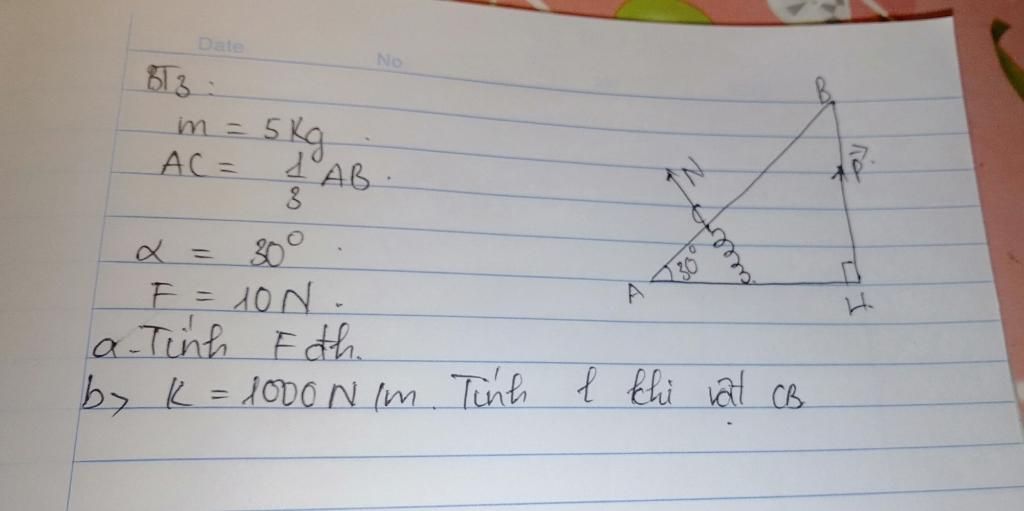 Date
No
BT3:
m = 5 Kg.
AC = 1/3 AB.
α = 30°.
F = 10N.
a. Tính Fđh.
b> K = 1000 N/m. Tính l khi vật CB
B
P⃗.
N
C
30°
A
H.